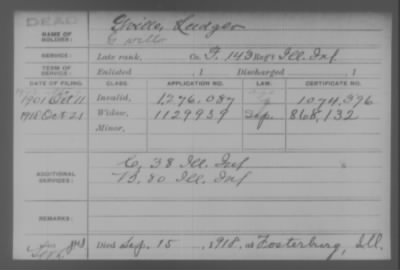 DEAD
NAME OF SOLDIER: Gville, Ludger
G ville
SERVICE: Late rank, Co. F, 143 Reg't Ill. Inf.
TERM OF SERVICE: Enlisted , 1 Discharged , 1
DATE OF FILING. CLASS. APPLICATION NO. LAW. CERTIFICATE NO.
1901 Oct 11 Invalid, 1,276,087 1074,396
1918 Oct 21 Widow, 1129939 Sep. 868,132
Minor,
ADDITIONAL SERVICES:
G, 38 Ill. Inf
B, 80 Ill. Inf
REMARKS:
Died Sep. 15 , 1918, at Fosterburg, Ill.